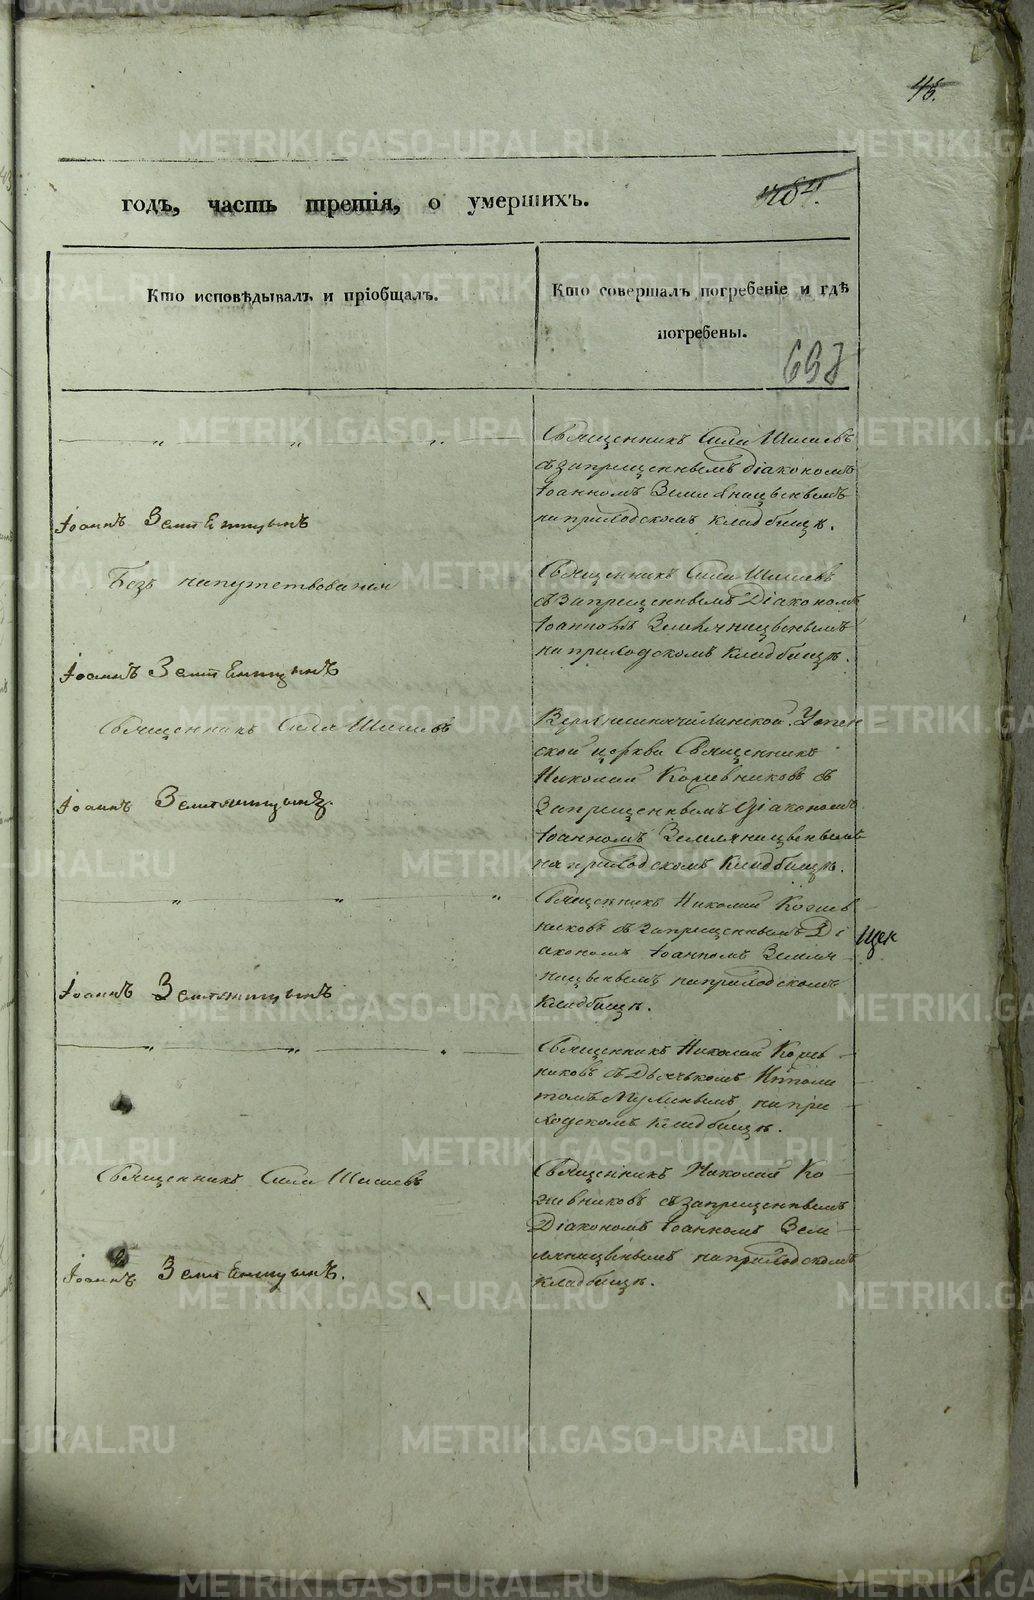 46.
годъ, часть третія, о умершихъ.
Кто исповѣдывалъ и пріобщалъ.
Кто совершалъ погребеніе и гдѣ
погребены.
697
Священникъ Сила Шишевъ
съ запрещеннымъ діакономъ
Іоанномъ Земляницынымъ
на приходскомъ кладбищѣ.
Іоаннъ Земляницынъ
Безъ напутствованія
Священникъ Сила Шишевъ
съ запрещеннымъ Діакономъ
Іоанномъ Земляницынымъ
на приходскомъ кладбищѣ.
Іоаннъ Земляницынъ
Священникъ Сила Шишевъ
Успен
ской церкви Священникъ
Николай Кожевниковъ съ
запрещеннымъ Діакономъ
Іоанномъ Земляницынымъ
на приходскомъ кладбищѣ.
Іоаннъ Земляницынъ.
Священникъ Николай Кожев
никовъ съ запрещеннымъ Ді
акономъ Іоанномъ Земля-
ницынымъ на приходскомъ
кладбищѣ.
щен
Іоаннъ Земляницынъ
Священникъ Николай Кожев-
никовъ съ Дьячкомъ Иппoли
томъ на при
ходскомъ кладбищѣ.
Священникъ Сила Шишевъ
Священникъ Николай Ко-
жевниковъ съ запрещеннымъ
Діакономъ Іоанномъ Зем-
ляницынымъ на приходскомъ
кладбищѣ.
Іоаннъ Земляницынъ.
METRIKI.GASO-URAL.RU